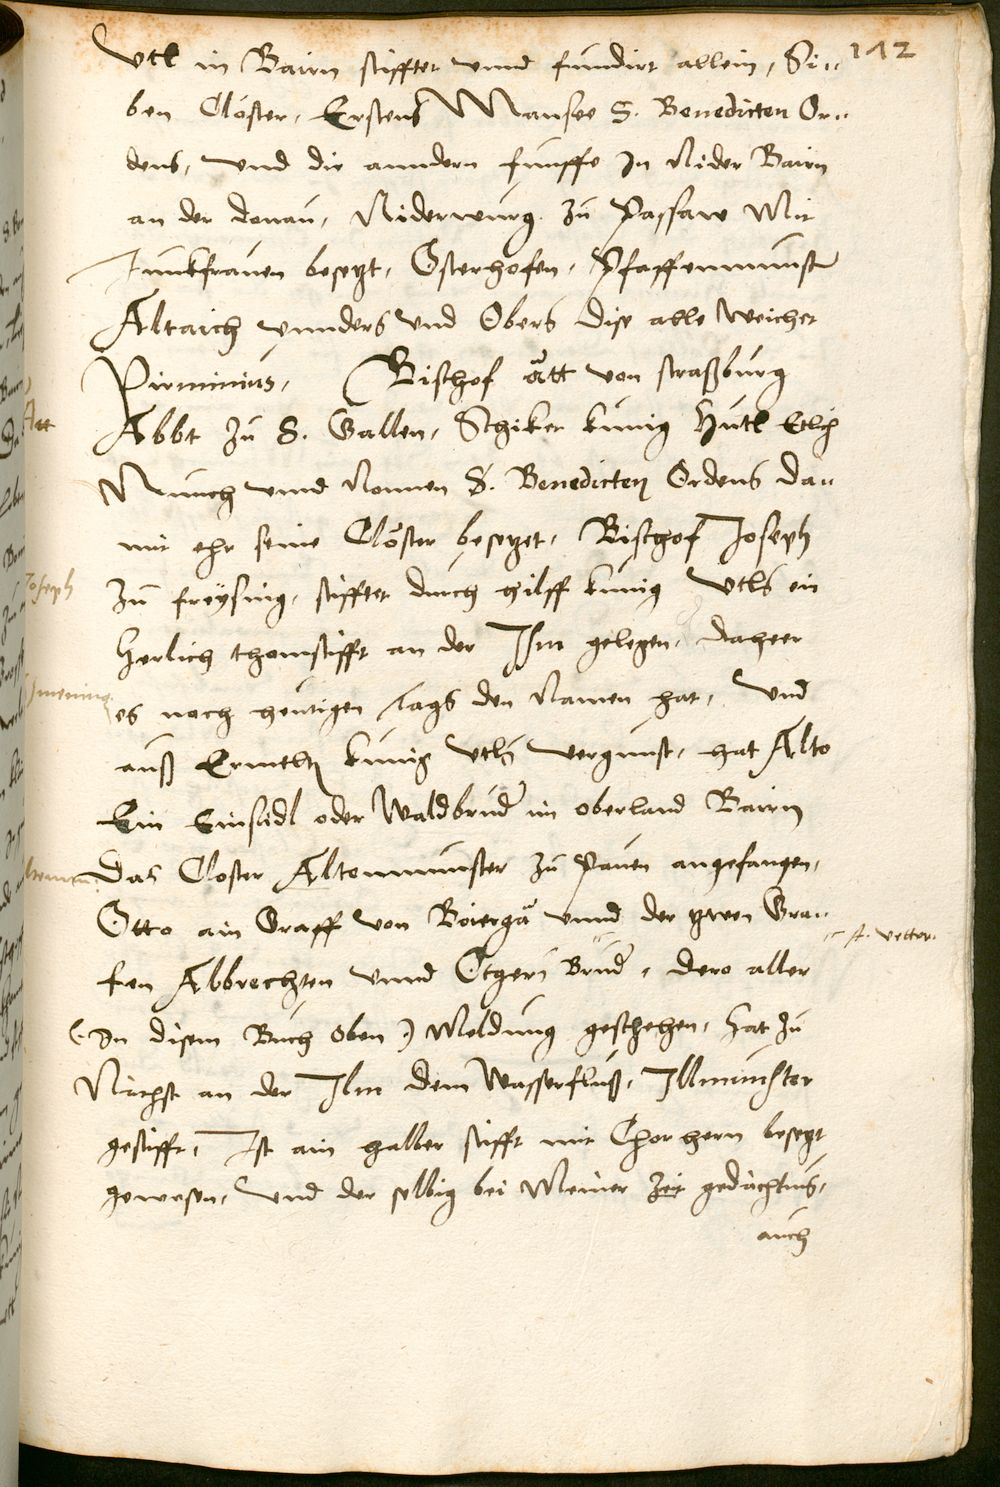 112
Vtl in Bairn stifftet vnnd fundirt allein, Si=
ben Clöster, Erstens Mansee S. Benedicten Or=
dens, vnnd die anndern fünffe In Nider Bairn
an der donau, Niderwürg zu Passaw Mit
Junkfrauen besezt, Osterhofen, Pfaffenmünster
Altaich vnnders vnd Obers dise alle Weichet
Pirminius, Bischof ätt von straßburg
Abbt zu S. Gallen, Schiket künig Hütl Etlich
Münch vnnd Nonnen S. Benedicten Ordens da=
mit ehr seine Clöster besezet, Bischof Joseph
zu freÿsing, stifftet durch hilff künig Vtls ein
Herlich thomstifft an der Ism gelegen, daheer
es noch heutigen tags den Namen hat, Vnd
auß künig Vtls vergunst, hat Alto
Ein Einsidl oder Waldbruder im oberland Bairn
das Closter Altonmünster zu Pauen angefangen,
Otto ain Graff von vnnd der zwen Gra=
fen Albbrechten vnnd Otgers Bruder, dero aller
(: In disem Buch oben :) Meldung geschehen, hat zu
Nächst an der Ilm dem Wasserfluß, Illmünster
gestifft, Ist ain halber stifft mit Chorhern besezt
gewesen, Vnd der selbig bei Meiner Zeit gedächtnus,
auch
Att
Joseph
vetter.